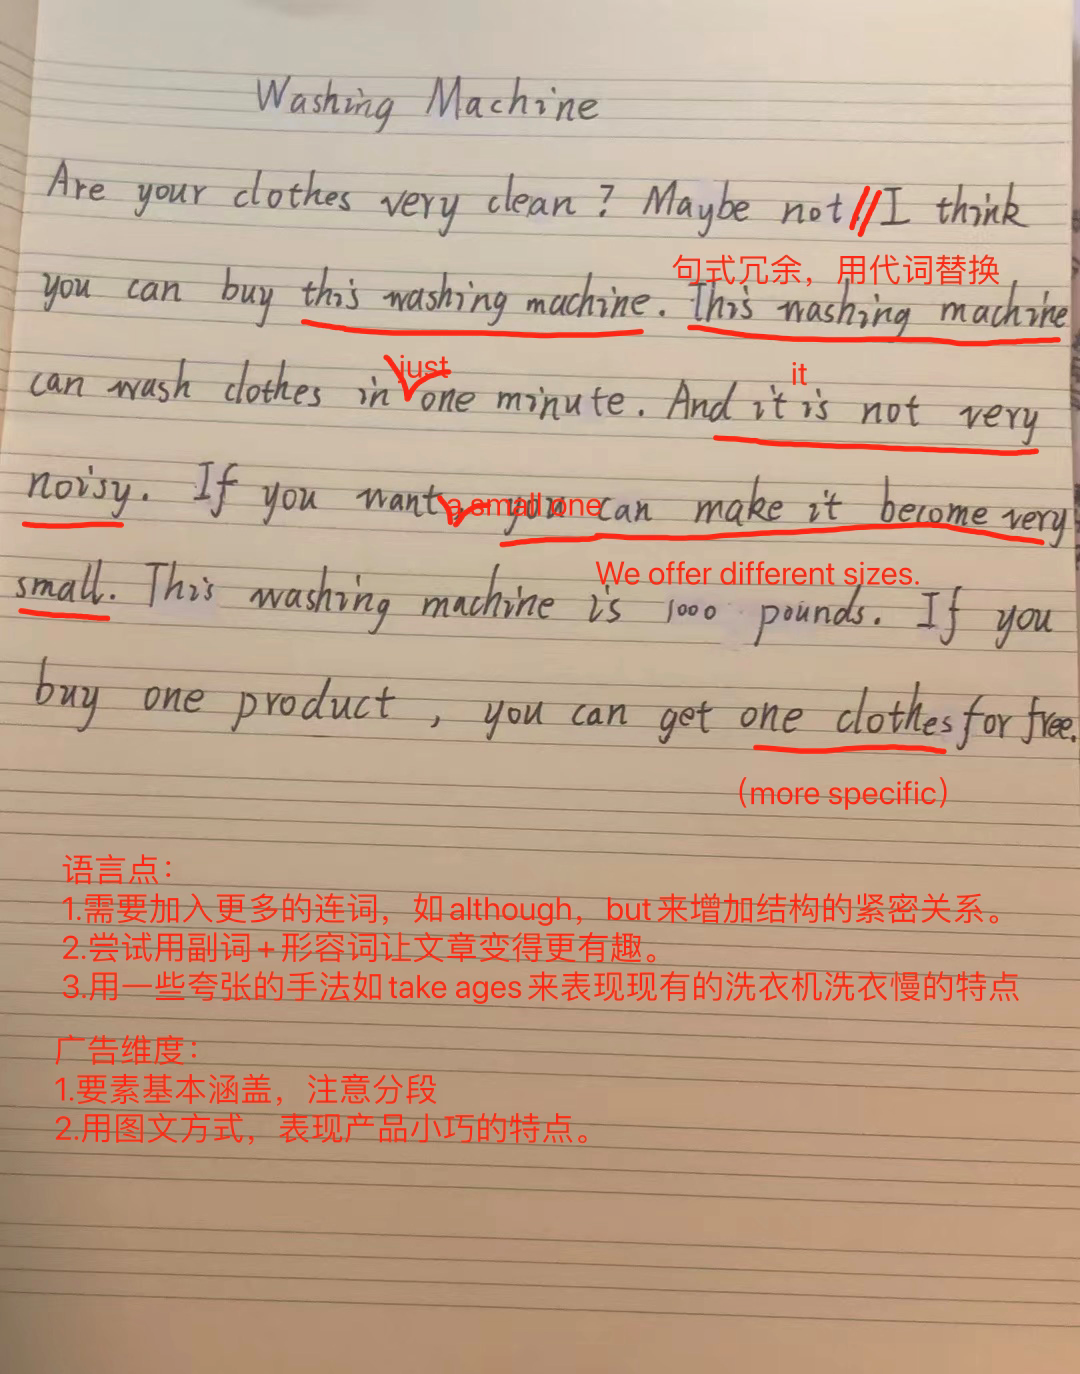 Washing Machine
Are your clothes very clean? Maybe not.//I think
句式冗余，用代词替换
you can buy this washing machine. This washing machine
just
it
can wash clothes in one minute. And it is not very
noisy. If you want you can make it become very
a small one
We offer different sizes.
small. This washing machine is 1000 pounds. If you
buy one product, you can get one clothes for free.
（more specific）
语言点：
1.需要加入更多的连词，如although，but来增加结构的紧密关系。
2.尝试用副词+形容词让文章变得更有趣。
3.用一些夸张的手法如take ages来表现现有的洗衣机洗衣慢的特点
广告维度：
1.要素基本涵盖，注意分段
2.用图文方式，表现产品小巧的特点。